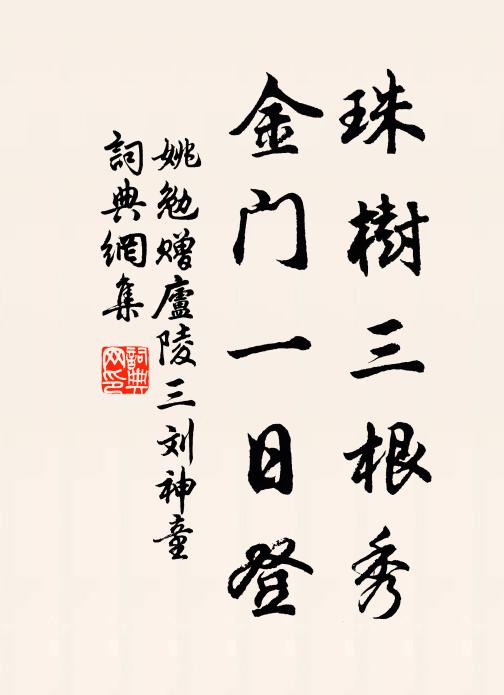 珠樹三根秀
金门一日登
姚勉赠廬陵三刘神童
詞典網集
詞典網印